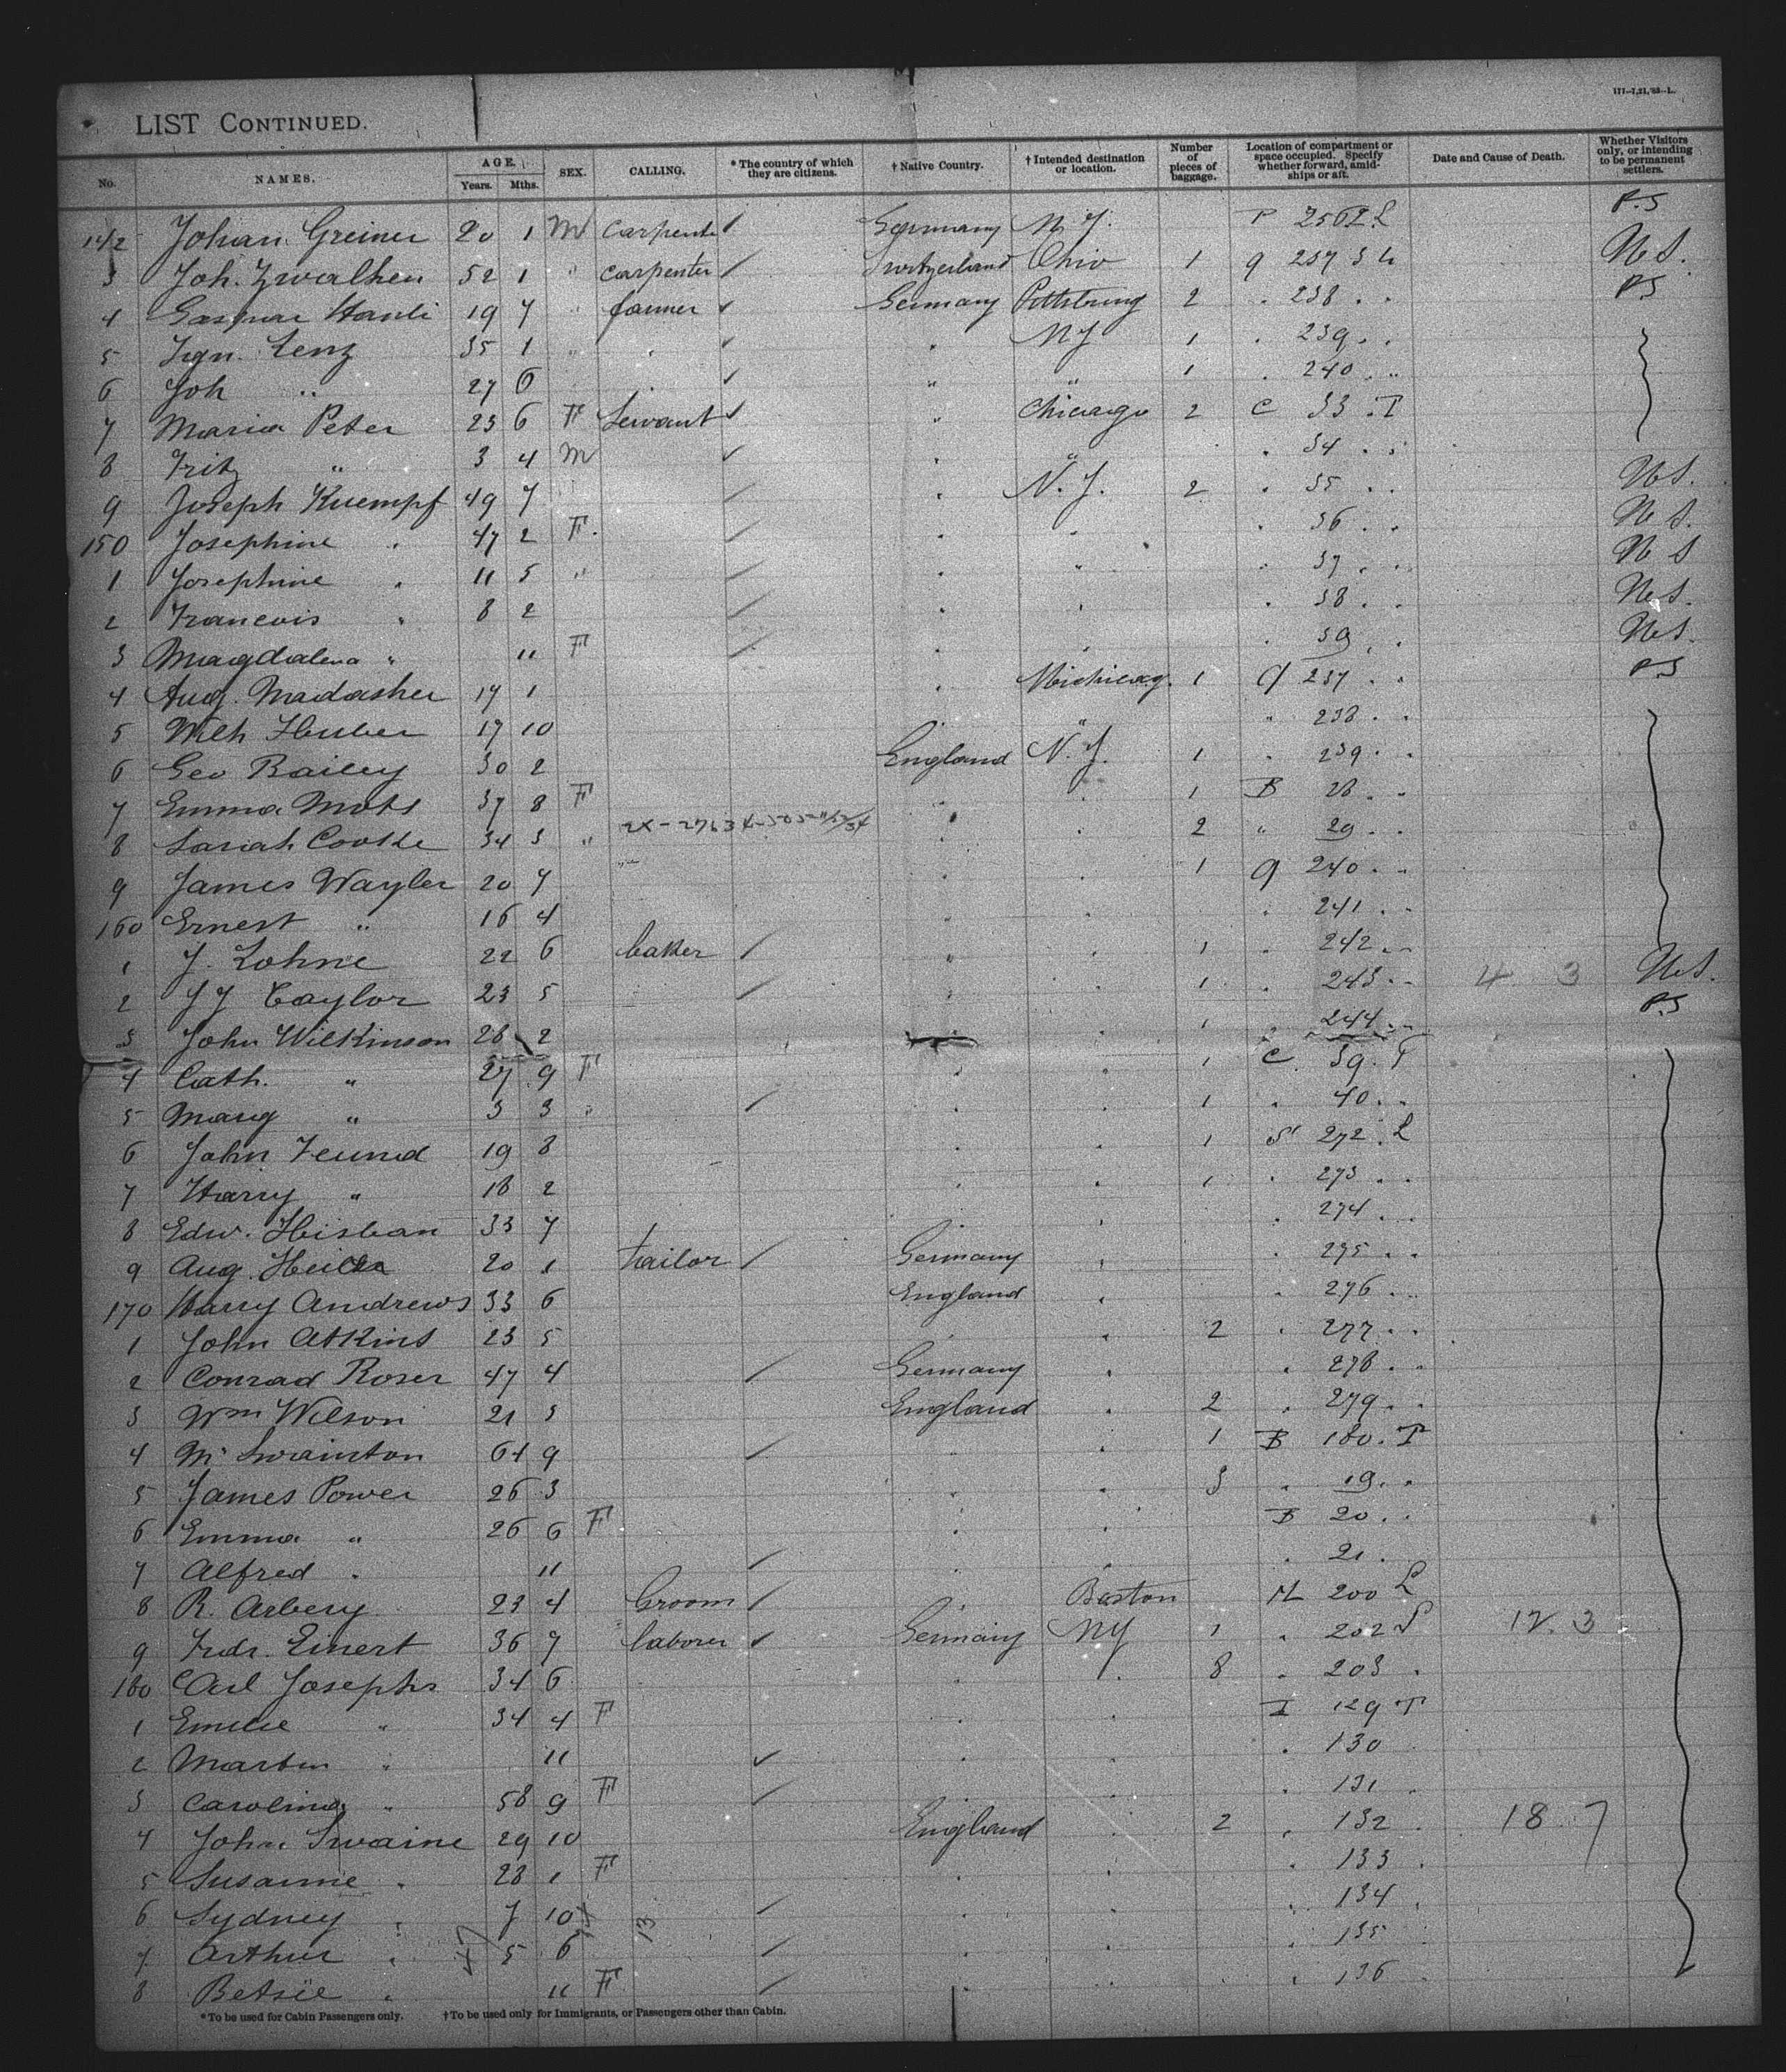 LIST CONTINUED.
No. NAMES. AGE. Years. Mths. SEX. CALLING. * The country of which they are citizens. † Native Country. † Intended destination or location. Number of pieces of baggage. Location of compartment or space occupied. Specify whether forward, amidships or aft. Date and Cause of Death. Whether Visitors only, or intending to be permanent settlers.
142 Johan Greiner 20 1 M Carpente ✓ Germany N.Y. P.S
3 Joh. 52 1 " Carpenter ✓ Switzerland Ohio 1 g 237
4 19 7 " farmer ✓ Germany 2 . 238 . . P.S
5 Ign. Lenz 35 1 " . ✓ . NY 1 . 239 . .
6 Joh " 27 6 . ✓ " " 1 . 240 . "
7 Maria Peter 23 6 F Servant ✓ . Chicargo 2 C 33 . T
8 Fritz " 3 4 M ✓ . " . 34 . .
9 Joseph Kuempf 49 7 ✓ . N.Y. 2 . 35 . .
150 Josephine . 47 2 F. ✓ . . . 36 . .
1 Josephine . 11 5 " ✓ . " . 37 . .
2 Francois . 8 2 ✓ . . . 38 . .
3 Magdalena " 11 F ✓ . . . 39 . .
4 Aug. Madasher 17 1 . 1 g 237 . . P.S
5 Wilh Huber 17 10 . " " 238 . .
6 Geo Bailey 30 2 England N.Y. 1 . 239 . .
7 Emma Mots 37 8 F . . 1 B 28 . .
8 Sariah Cooke 34 3 " . . 2 " 29 . .
9 James Wayler 20 7 . . 1 g 240 . .
160 Ernest " 16 4 . . . 241 . .
1 J. Lohne 22 6 baker ✓ " . 1 . 242 . .
2 J J Caylor 23 5 ✓ . . 1 . 243 . . 4 3
3 John Wilkinson 28 2 . 1 . 244 . . P.S
4 Cath. " 27 9 F . . 1 C 39 . T
5 Marg " 3 3 " ✓ . . 1 . 40 . .
6 John Feund 19 8 . . 1 S 272 . L
7 Harry " 18 2 . . 1 . 273 . .
8 Edw. Hisban 33 7 . . . 274 . .
9 Aug. 20 1 tailor ✓ Germany . . 275 . .
170 Harry Andrews 33 6 England . . 276 . .
1 John Atkins 23 5 . . 2 . 277 . .
2 Conrad Roser 47 4 ✓ Germany . . 278 . .
3 Wm Wilson 21 3 England . 2 . 279 . .
4 Mr Swainton 64 9 ✓ . . 1 B 180 . T
5 James Power 26 3 . . 3 . 19 . .
6 Emma " 26 6 F . . B 20 . .
7 Alfred . 11 ✓ . . . 21 .
8 R. Arbery 23 4 Groom ✓ . Boston 200 L
9 Fredr. Einert 36 7 laborer ✓ Germany NY 1 . 202 12. 3
180 Carl Josephs 34 6 . . 8 . 203 .
1 Emilie " 34 4 F . . I 129 T
2 Martin " 11 ✓ . . . 130
3 Carolina " 58 9 F ✓ . 131 .
4 John Swaine 29 10 England . 2 . 132 . 18 7
5 Susannie . 28 1 F . . . 133 .
6 Sydney . 7 10 ✓ . . . 134 .
7 Arthur . 5 6 ✓ . . . 135
8 Betsie . 11 F ✓ . . . 136 .
* To be used for Cabin Passengers only. † To be used only for Immigrants, or Passengers other than Cabin.